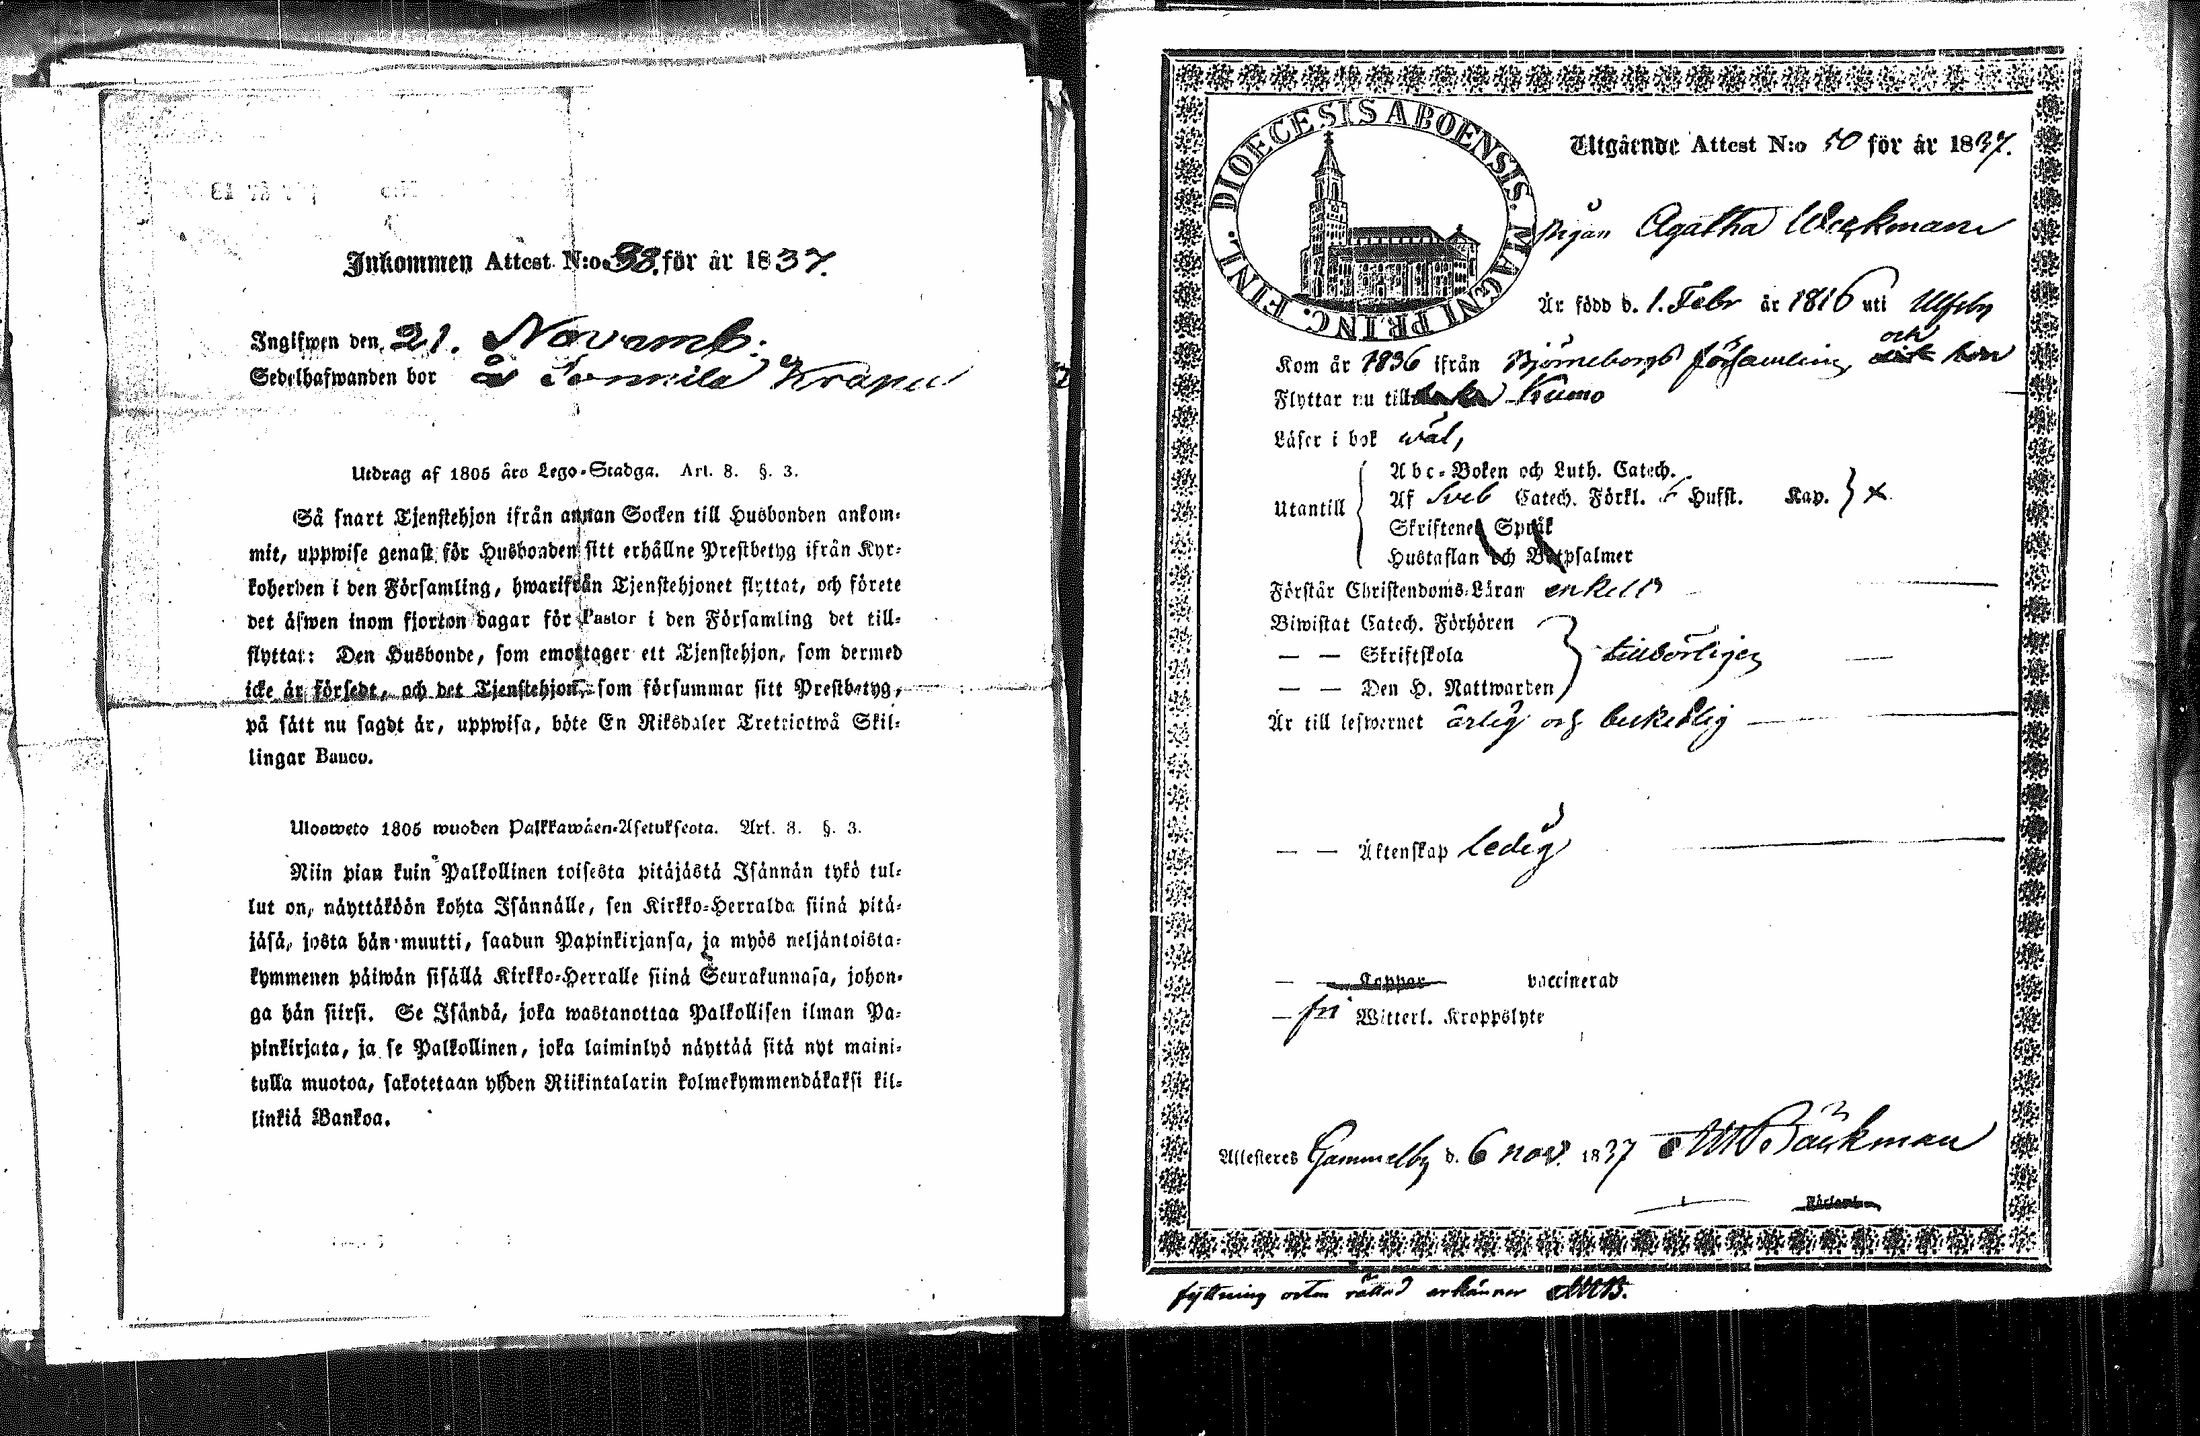 Inkommen Attest N:o 38. för år 1837.
Ingifwen den 21. Novemb.
Sedelhafwanden bor å Sonnila Krapu
Utdrag af 1805 års Lego-Stadga. Art. 8. §. 3.
Så snart Tjenstehjon ifrån annan Socken till Husbonden ankom-
mit, uppwise genast för Husbonden sitt erhållne Prestbetyg ifrån Kyr-
koherden i den Församling, hwarifrån Tjenstehjonet flyttat, och förete
det äfwen inom fjorton dagar för Pastor i den Församling det till-
flyttat: Den Husbonde, som emottager ett Tjenstehjon, som dermed
icke är försedt, och det Tjenstehjon, som försummar sitt Prestbetyg,
på sätt nu sagdt är, uppwisa, böte En Riksdaler Tretiotwå Skil-
lingar Banco.
Ulosweto 1805 wuoden Palkkawäen-Asetuksesta. Art. 8. §. 3.
Niin pian kuin Palkollinen toisesta pitäjästä Isännän tykö tul-
lut on, näyttäköön kohta Isännälle, sen Kirkko-Herralda siinä pitä-
jäsä, josta hän muutti, saadun Papinkirjansa, ja myös neljäntoista-
kymmenen päiwän sisällä Kirkko-Herralle siinä Seurakunnasa, johon-
ga hän siirsi. Se Isändä, joka wastanottaa Palkollisen ilman Pa-
pinkirjata, ja se Palkollinen, joka laiminlyö näyttää sitä nyt maini-
tulla muotoa, sakotetaan yhden Riikintalarin kolmekymmendäkaksi kil-
linkiä Bankoa.
DIOECESIS ABOENSIS. MAGNI PRINC. FINL.
Utgående Attest N:o 50 för år 1837.
Pigan Agatha Weckman
Är född d. 1. Febr år 1816 uti Ulfsby
Kom år 1836 ifrån Björneborgs församling och
Flyttar nu till Kumo
Läser i bok wäl,
Utantill
Abc-Boken och Luth. Catech.
Af Sveb Catech. Förkl. 6 Hufst. Kap. x
Skriftenes Språk
Hustaflan och Botpsalmer
Förstår Christendoms-Läran enkelt
Biwistat Catech. Förhören
— — Skriftskola tillbörligen
— — Den H. Nattwarden
Är till lefwernet ärlig och beskedlig
— — Äktenskap ledig
— — Koppor vaccinerad
— fri Witterl. Kroppslyte
Attesteres Gammelby d. 6 nov. 1837 Bäckman
flyttning orten rättad erkänner MB.